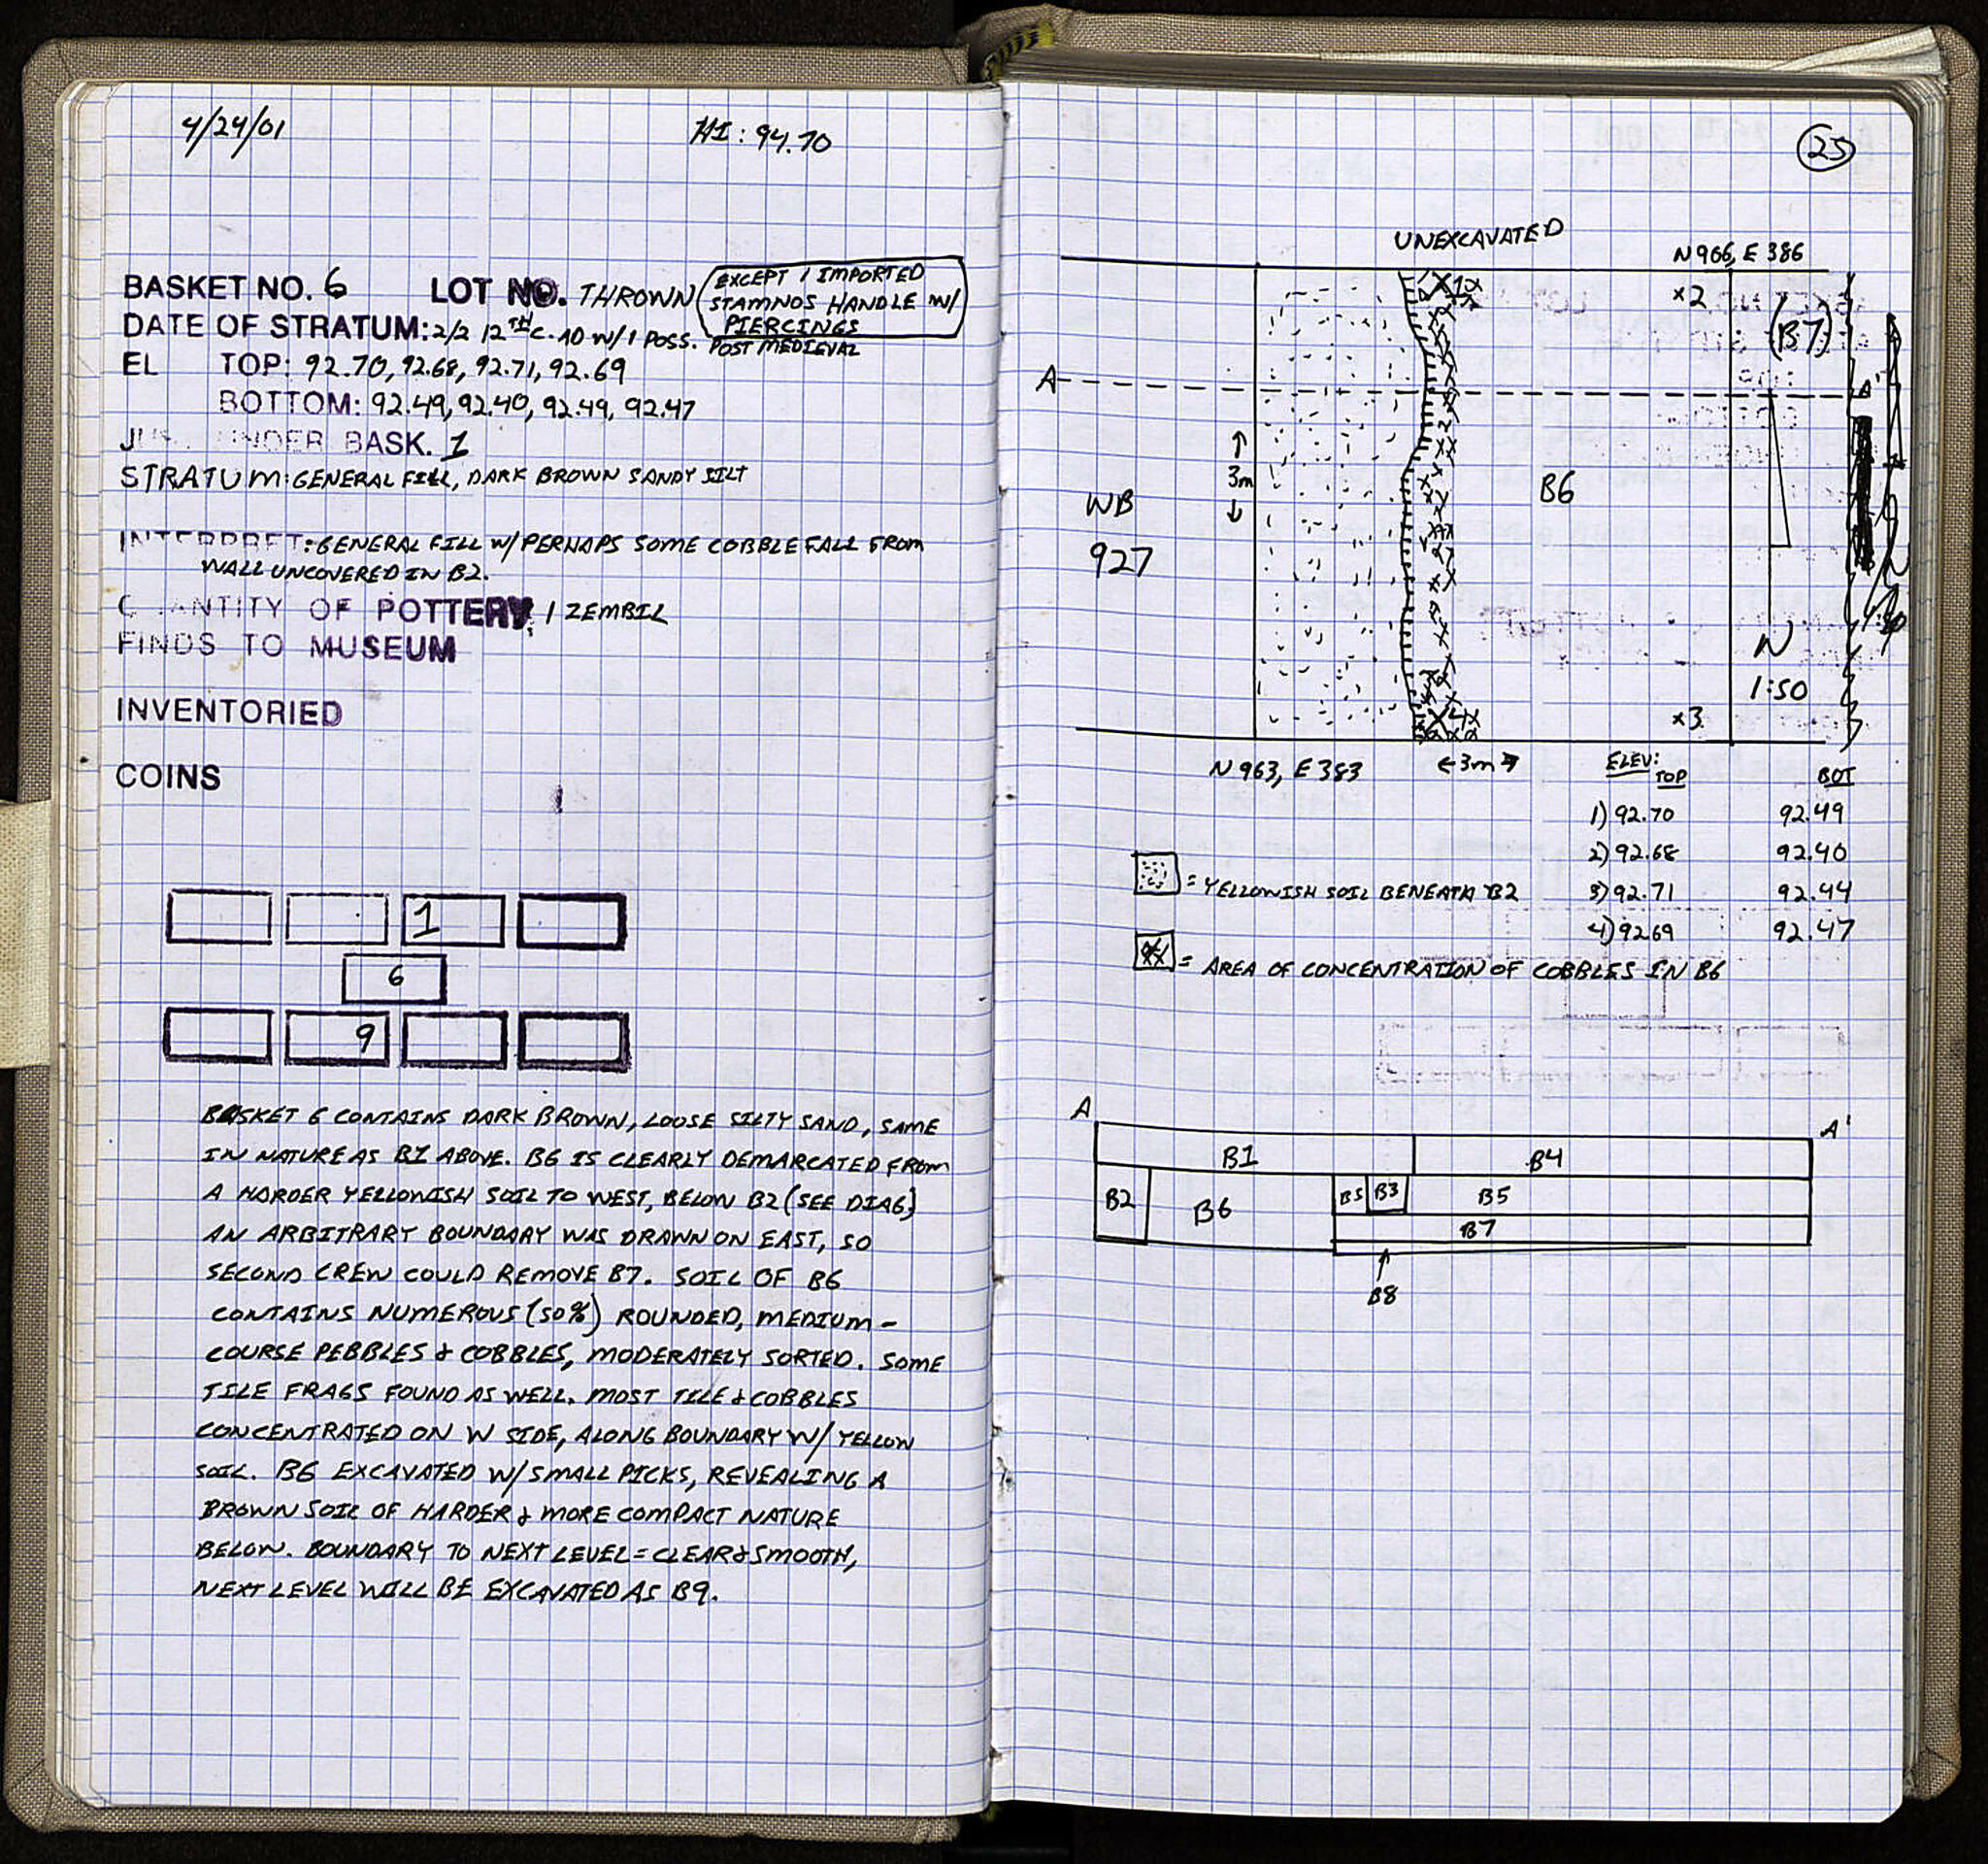 4/24/01
HI: 94.70
BASKET NO. 6 LOT NO. THROWN (EXCEPT 1 IMPORTED
STAMNOS HANDLE W/
PIERCINGS
DATE OF STRATUM: 2/2 12TH C. AD W/1 POSS. POST MEDIEVAL
EL TOP: 92.70, 92.68, 92.71, 92.69
BOTTOM: 92.49, 92.40, 92.49, 92.47
UNDER BASK. 1
STRATUM: GENERAL FILL, DARK BROWN SANDY SILT
INTERPRET: GENERAL FILL W/ PERHAPS SOME COBBLE FALL FROM
WALL UNCOVERED IN B2.
QUANTITY OF POTTERY: 1 ZEMBIL
FINDS TO MUSEUM
INVENTORIED
COINS
1
6
9
BASKET 6 CONTAINS DARK BROWN, LOOSE SILTY SAND, SAME
IN NATURE AS B1 ABOVE. B6 IS CLEARLY DEMARCATED FROM
A HARDER YELLOWISH SOIL TO WEST, BELOW B2 (SEE DIAG)
AN ARBITRARY BOUNDARY WAS DRAWN ON EAST, SO
SECOND CREW COULD REMOVE B7. SOIL OF B6
CONTAINS NUMEROUS (50%) ROUNDED, MEDIUM-
COURSE PEBBLES & COBBLES, MODERATELY SORTED. SOME
TILE FRAGS FOUND AS WELL. MOST TILE & COBBLES
CONCENTRATED ON W SIDE, ALONG BOUNDARY W/ YELLOW
SOIL. B6 EXCAVATED W/ SMALL PICKS, REVEALING A
BROWN SOIL OF HARDER & MORE COMPACT NATURE
BELOW. BOUNDARY TO NEXT LEVEL = CLEAR & SMOOTH,
NEXT LEVEL WILL BE EXCAVATED AS B9.
25
UNEXCAVATED
N 966, E 386
x1
x2
(B7)
A
A'
3m
WB
927
B6
N
1:50
x4
x3
N 963, E 383
←3m→
ELEV:
TOP BOT
1) 92.70 92.49
2) 92.68 92.40
3) 92.71 92.44
4) 92.69 92.47
= YELLOWISH SOIL BENEATH B2
= AREA OF CONCENTRATION OF COBBLES IN B6
A
A'
B1 B4
B2 B6 B5 B3 B5
B7
B8